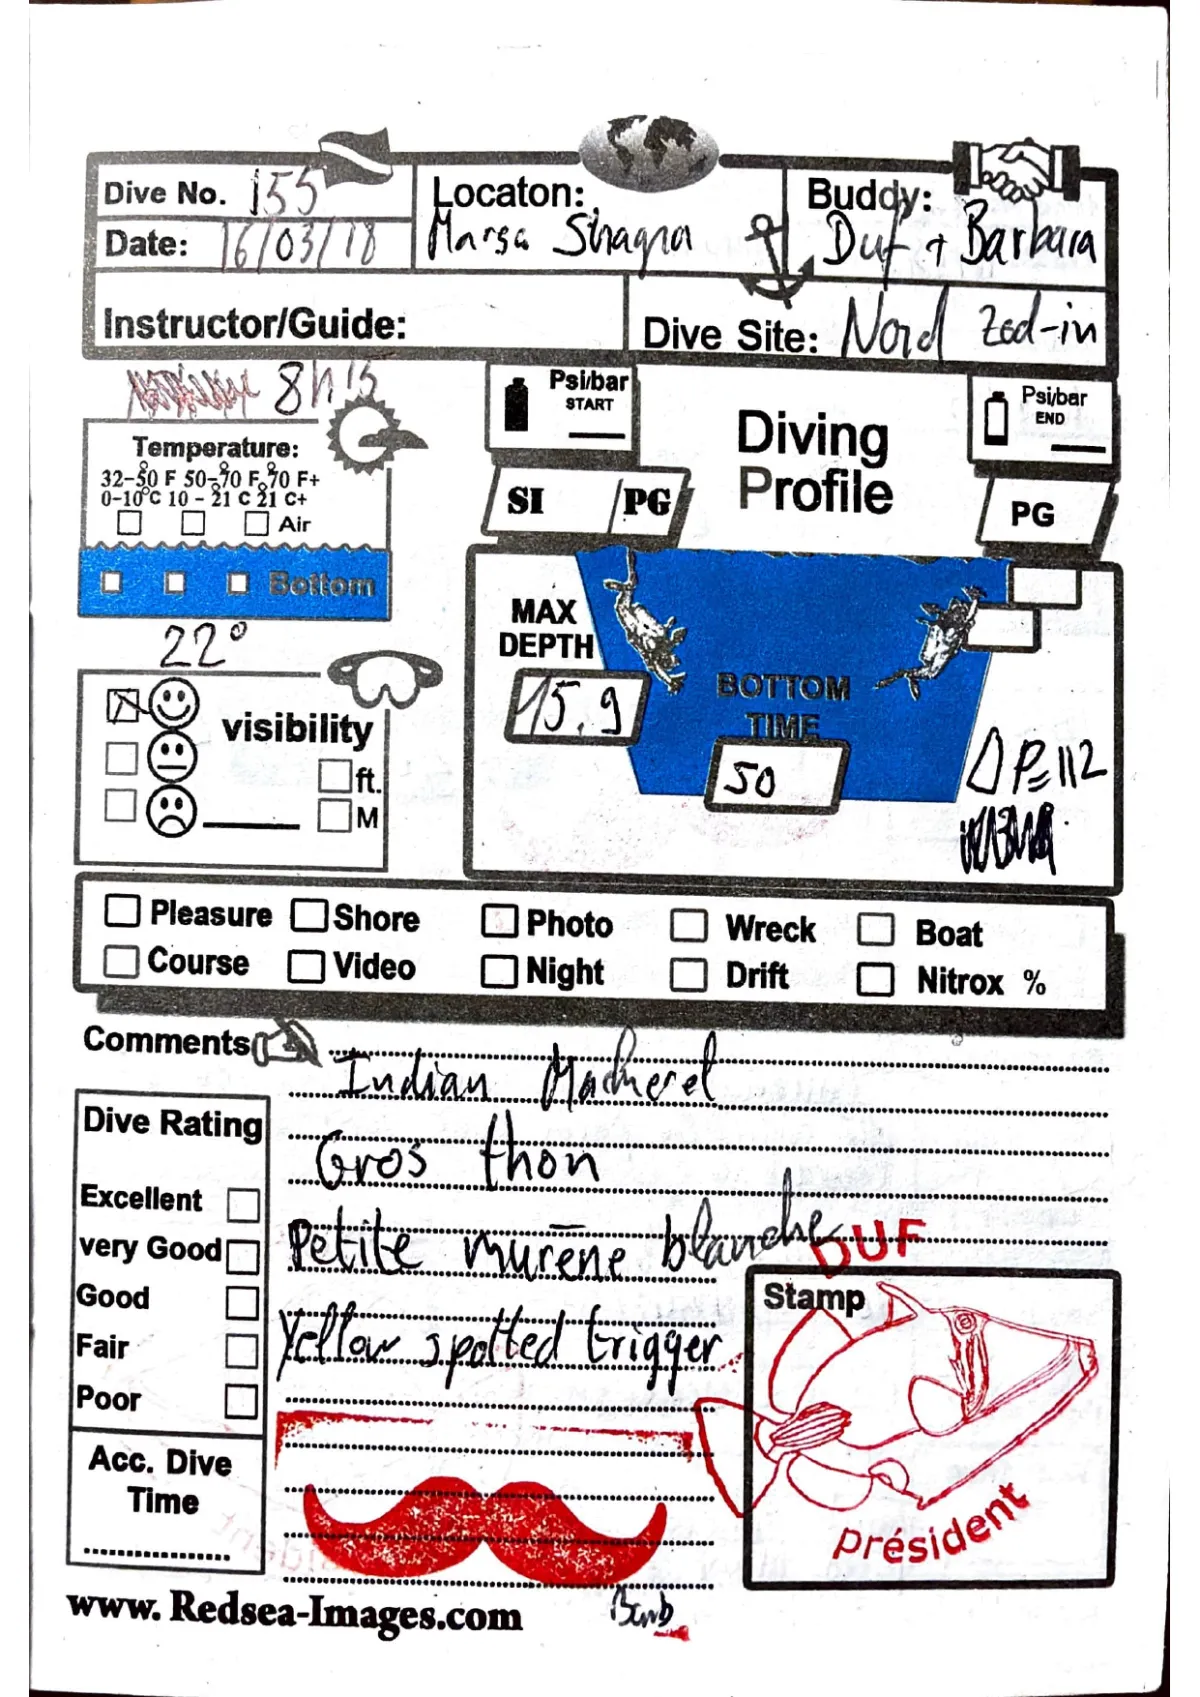 Dive No. 155
Date: 16/03/18
Locaton:
Marsa Shagra
Buddy:
Duf + Barbara
Instructor/Guide:
Dive Site: Nord Zod-in
8h15
Temperature:
32-50 F 50-70 F 70 F+
0-10°C 10 - 21 C 21 C+
Air
Bottom
22°
Psi/bar
START
Diving
Profile
Psi/bar
END
SI / PG
PG
MAX
DEPTH
15,9
BOTTOM
TIME
50
Δ P= 112
visibility
ft.
M
Pleasure Shore Photo Wreck Boat
Course Video Night Drift Nitrox %
Comments
Indian Mackerel
Gros thon
Petite murène blanche
Yellow spotted trigger
Dive Rating
Excellent
very Good
Good
Fair
Poor
Acc. Dive
Time
DUF
Stamp
Président
www. Redsea-Images.com
Barb